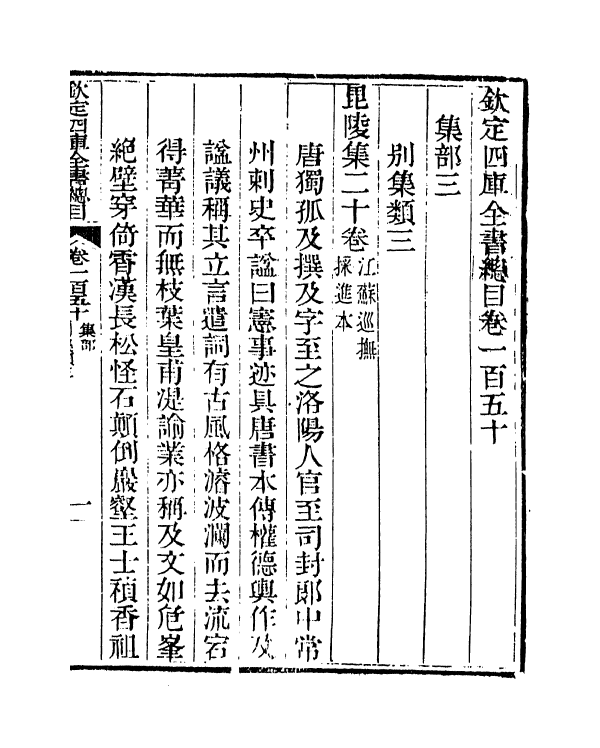 欽定四庫全書總目卷一百五十
集部三
別集類三
毘陵集二十卷江蘇巡撫採進本
唐獨孤及撰及字至之洛陽人官至司封郎中常
州刺史卒諡曰憲事迹具唐書本傳權德輿作及
諡議稱其立言遣詞有古風格濬波瀾而去流宕
得菁華而無枝葉皇甫湜諭業亦稱及文如危峯
絶壁穿倚霄漢長松怪石顛倒巖壑王士禎香祖
欽定四庫全書總目
卷一百五十
集部
一